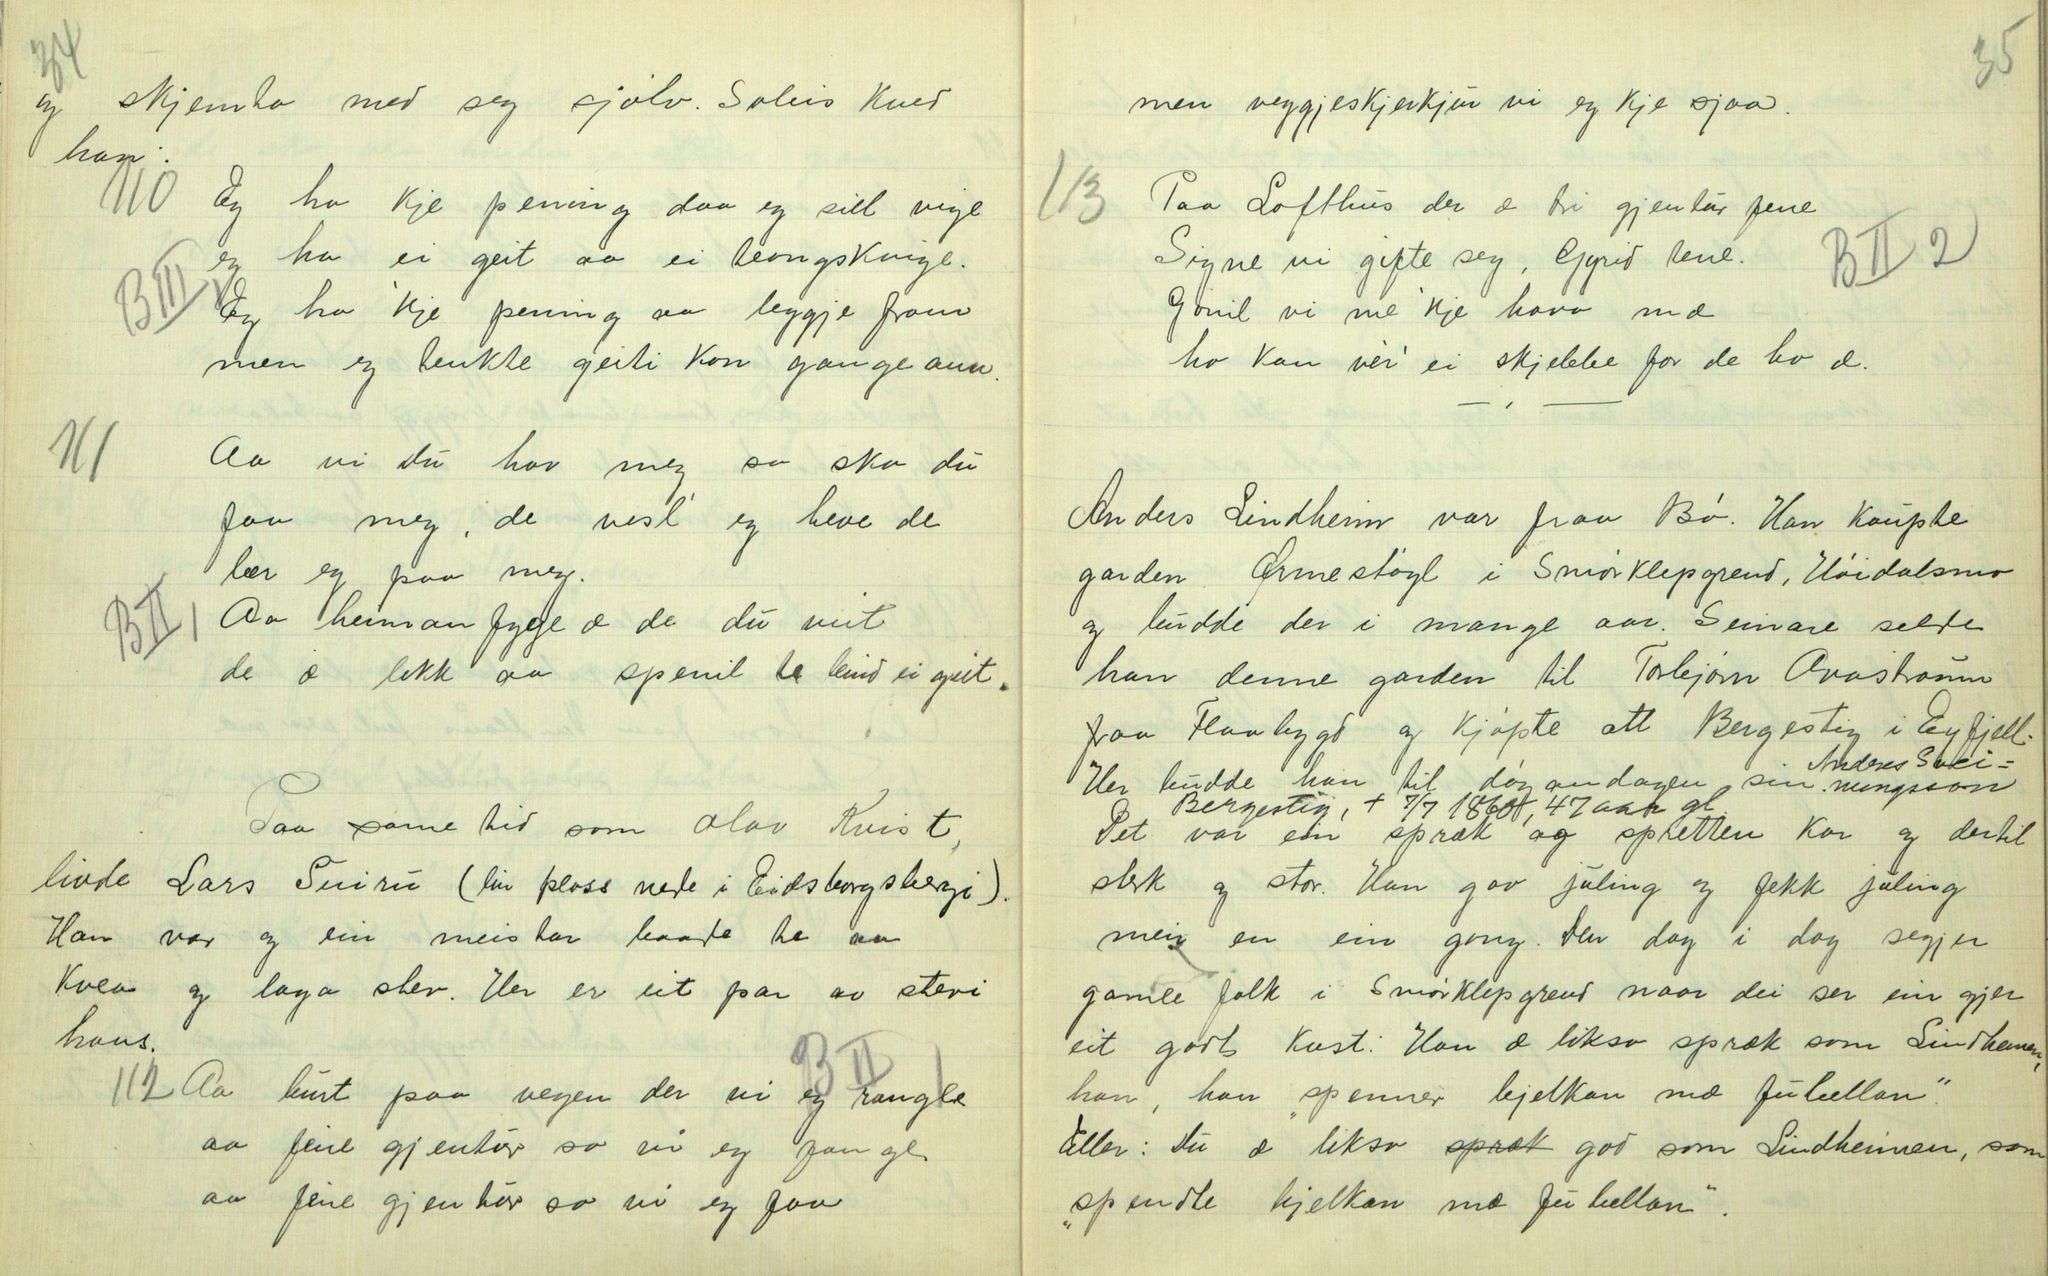 34
og skjemta med seg sjølv. Soleis kved
han:
110 Eg ha kje pening daa eg sill vige
eg ha ei geit aa ei kvige.
BIII, Eg ha 'kje pening aa leggje fram
men eg tenkte geiti kon gange ann.
111 Aa vi du hav meg so ska du
faa meg, de vesl' eg heve de
bær eg paa meg.
BII, 1 Aa heimanfygje æ de du veit
de æ lekk aa spenil te bind ei geit.
Paa same tid som Olav Kvist,
livde Lars Tuiru (ein plass nede i Eidsborgsbergi).
Han var og ein meistar baade te aa
kvea og laga stev. Her er eit par av stevi
hans.
BII 1
112 Aa burt paa vegen der vi eg rangle
aa feine gjentur so vi eg fangle
aa feine gjentur so vi eg faa
35
men veggjeskjerkjur vi eg kje sjaa.
113 Paa Lofthus der æ tri gjentur fene
Signe vi gifte seg, Gyrid tene.
BII 2
Gunil vi me 'kje hava mæ
ho kan vér' ei skjebbe for de ho æ.
Anders Lindheim var fraa Bø. Han kaupte
garden Ormestøyl i Smørklepgrend, Høidalsmo
og budde der i mange aar. Seinare selde
han denne garden til Torbjørn Avastraum
fraa Flaabygd og kjøpte att Bergestig i Eyfjell.
Her budde han til døyandagen sin. Anders Svei=
nungsson
Bergestig, + 7/7 1860, 47 aar gl.
Det var ein spræk og spretten kar og dertil
sterk og stor. Han gav juling og fekk juling
meir en ein gong. Den dag i dag segjer
gamle folk i Smørklepgrend naar dei ser ein gjer
eit godt kast: Han æ likso spræk som Lindheimen,
han, han "spenner bjelkan mæ fubællan".
Eller: Du æ likso spræk god som Lindheimen, som
"spendte bjelkan mæ fubællan".